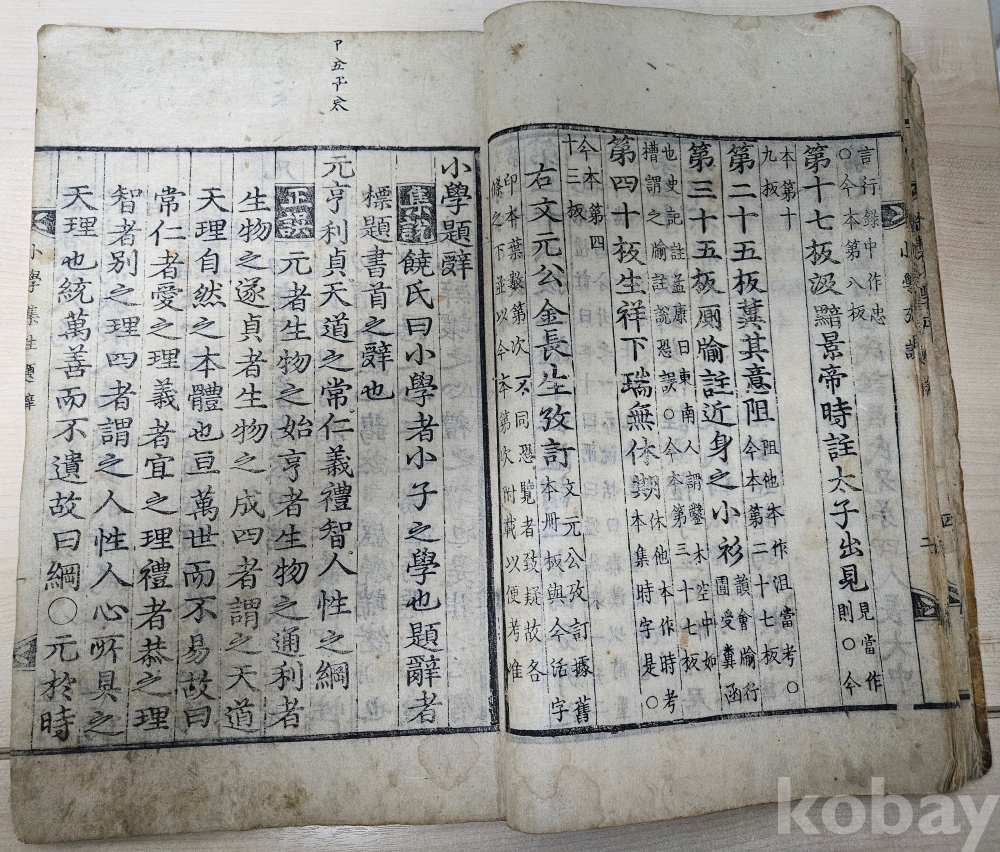 言行錄中作忠
〇今本第八板
第十七板汲黯景帝時註太子出見見當作則〇今
本第十九板
第二十五板冀其意阻阻他本作沮當考〇今本第二十七板
第三十五板厠牏註近身之小衫韻會牏行圊受糞函
也史記註孟康曰東南人謂鑿木空中如
槽謂之牏註說恐誤〇今本第三十七板
第四十板生祥下瑞無休期休他本作時考本集時字是〇
今本第四十三板
右文元公金長生攷訂文元公攷訂據舊本冊板與今活字
印本葉數第次不同恐覽者致疑故各
條之下並以今本第次附載以便考
小學題辭
集說饒氏曰小學者小子之學也題辭者
標題書首之辭也
元亨利貞天道之常仁義禮智人性之綱
正誤元者生物之始亨者生物之通利者
生物之遂貞者生物之成四者謂之天道
天理自然之本體也亘萬世而不易故曰
常仁者愛之理義者宜之理禮者恭之理
智者別之理四者謂之人性人心所具之
天理也統萬善而不遺故曰綱〇元於時
小學集註題辭
kobay